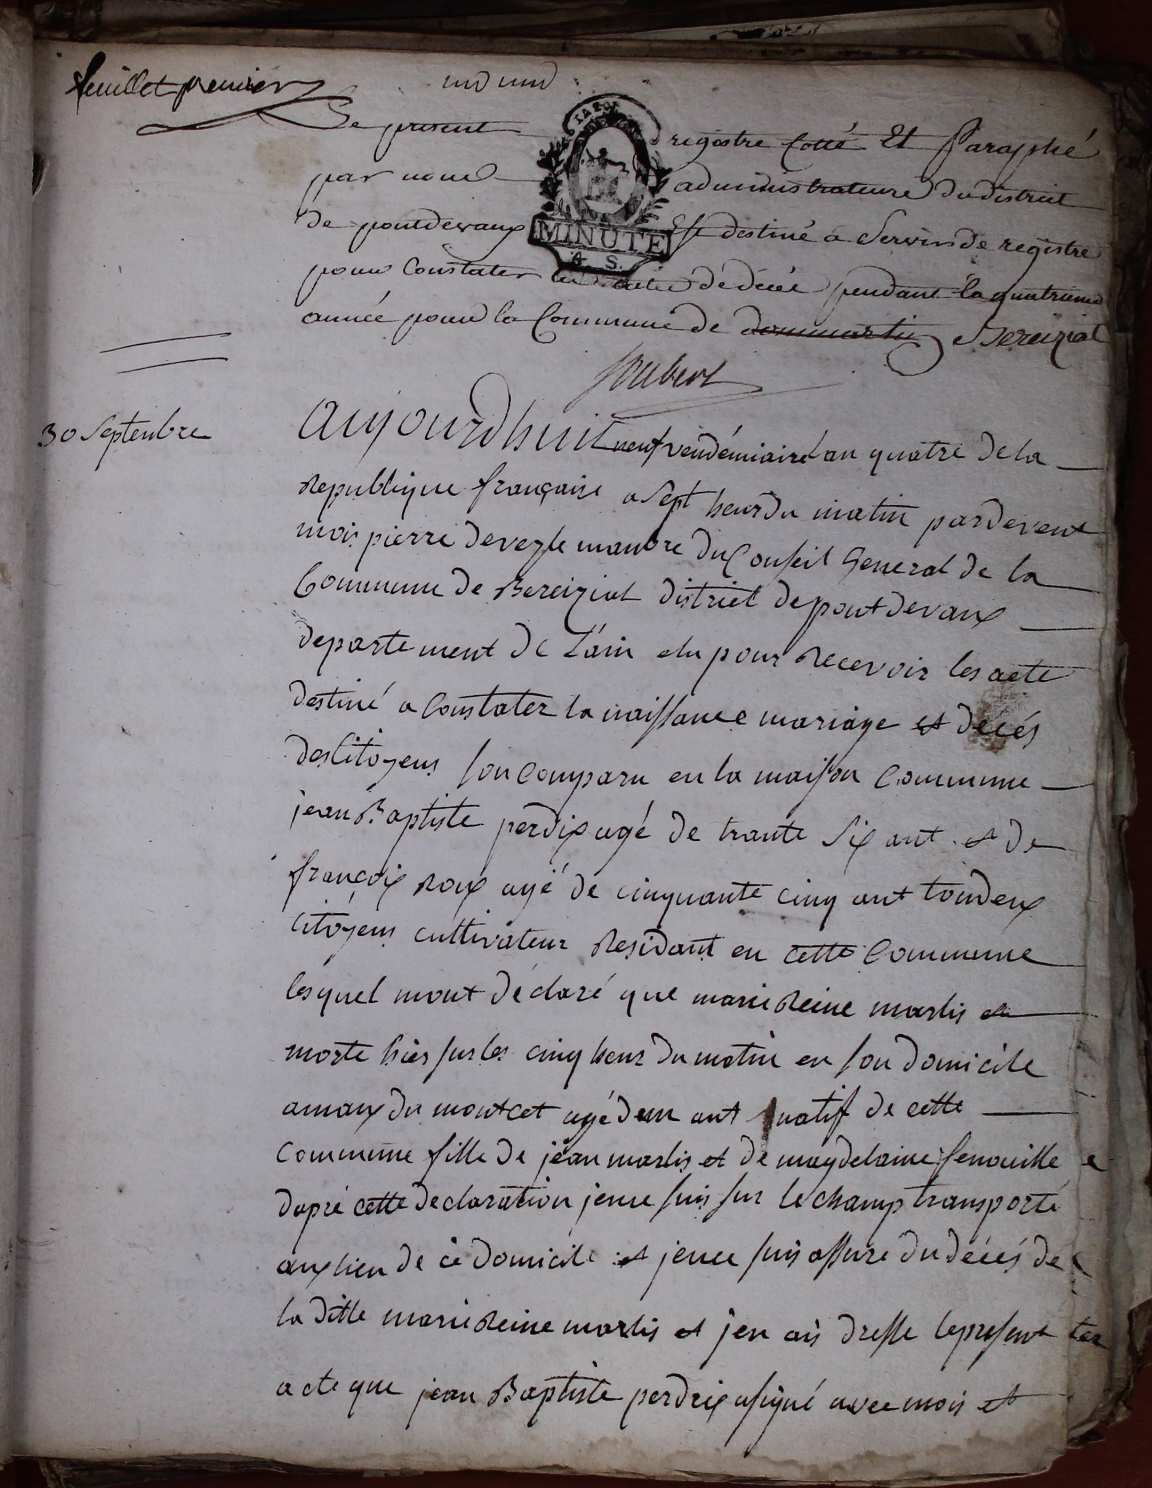 feuillet premier
Le present registre cotté Et Paraphé
par nous administrateurs du district
de pontdevaux Est destiné a Servir de registre
MINUTE
pour Constater les actes de décés pendant la quatrieme
année pour la Commune de dommartin Bereiziat
Joubert
30 Septenbre
aujourdhuit neuf vendémiaire lan quatre de la
Republique française a sept heur du matin pardevent
mois pierre devegle manbre du Conseil General de la
Commune de Bereiziat district de pont devaux
departement de L'ain elu pour Recevoir les acte
destiné a Constater la naissance mariage et décés
des Citoyens son Comparu en la maison Commune
jean Baptiste perdix agé de trante six ant et de
françoix Roux agé de cinquante cinq ant toudeux
Citoyens cultivateur Residant en cette Commune
lesquel mont déclaré que marie Reine marlis et
morte hier sur les cinq heur du matin en son domicile
amaux du montcet agé dun ant natif de cette
Commune fille de jean marlis et de magdelaine fenouille
dapré cette declaration jeme suis sur le champ transporté
aux lieu de ce domicile et jeme suis assure du décés de
la ditte marie Reine marlis et jen ais dresse le present
acte que jean Baptiste perdrix a signé avec mois et